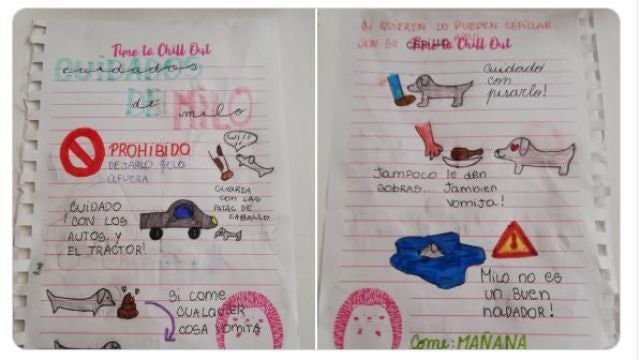 Time to Chill Out
CUIDADOS
cuidados
DE
de
MILO
milo
PROHIBIDO
DEJARLO SOLO
AFUERA
CUIDADO
CON LOS
AUTOS Y
EL TRACTOR!
CON LAS
PATAS DE
CABALLO
Si come
CUALQUIER
COSA VOMITA
SI QUIEREN LO PUEDEN CEPILLAR
CON SU CEPILLO
Time to Chill Out
Cuidado
con
pisarlo!
TAMPOCO le den
SOBRAS... También
vomita!
Milo no es
un buen
NADADOR!
Come: MAÑANA